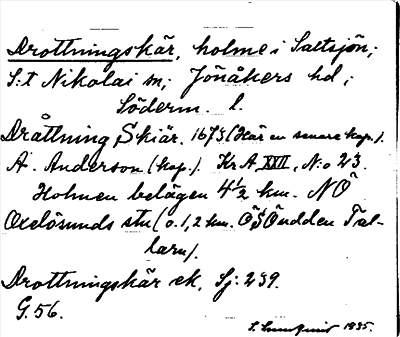 Drottningskär, holme i Saltsjön;
S:t Nikolai sn; Jönåkers hd;
Söderm. l.
Dråttning Skiär. 1675 (Här en senare kop.).
A. Anderson (kop.). Kr A XXII, N:o 23.
Holmen belägen 4½ km. NÖ
Oxelösunds stn (o. 1,2 km. ÖSÖ udden Tal-
larn).
Drottningskär ek. Sj: 239.
G. 56.
1935.